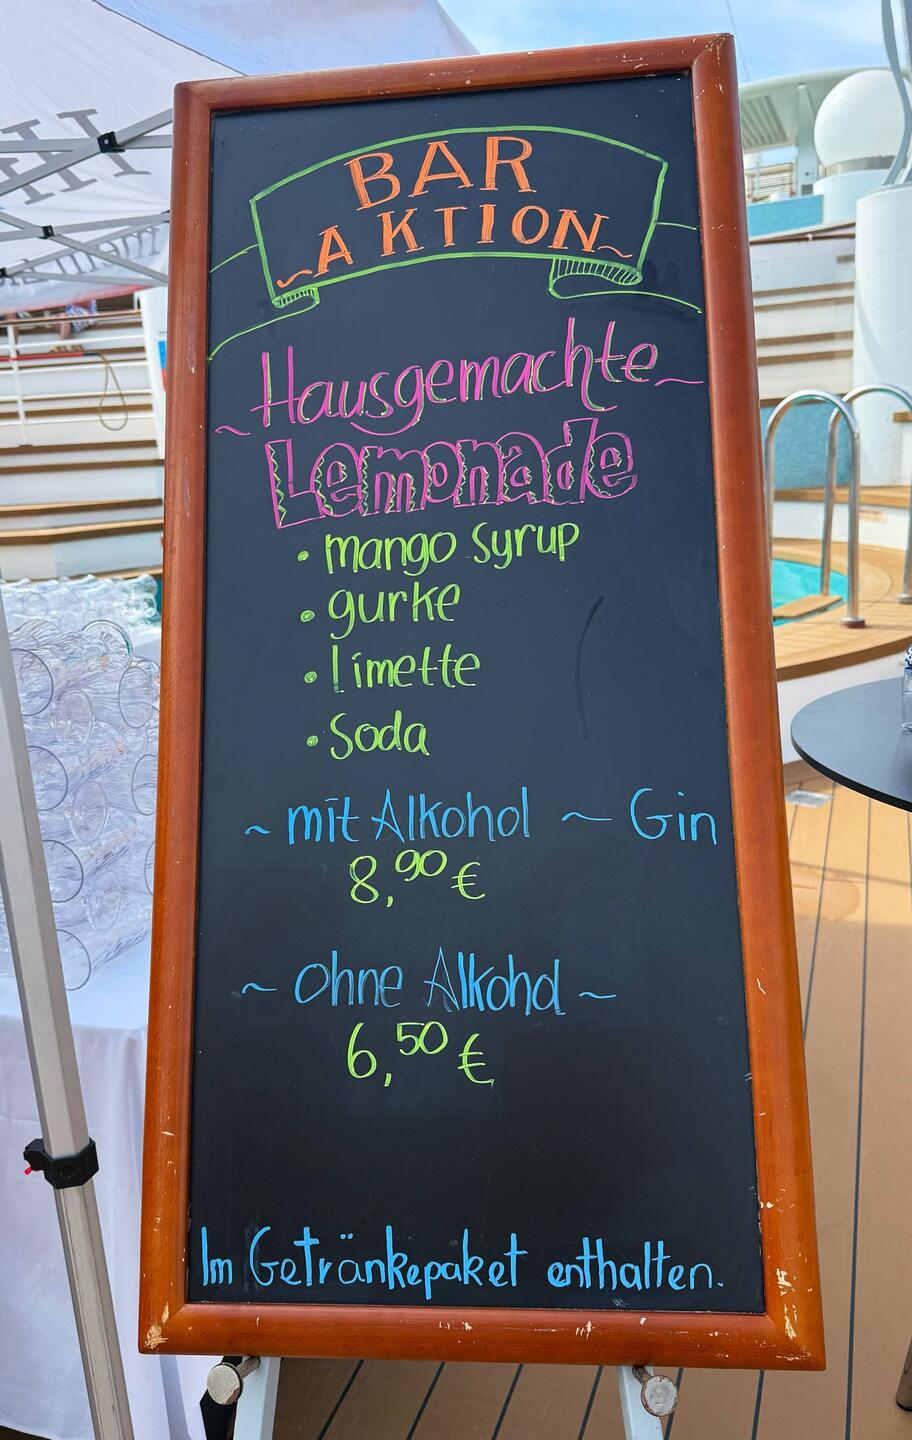 BAR
~AKTION~
~Hausgemachte~
Lemonade
• mango syrup
• gurke
• limette
• Soda
~ mit Alkohol ~ Gin
8,90 €
~ ohne Alkohol ~
6,50 €
Im Getränkepaket enthalten.